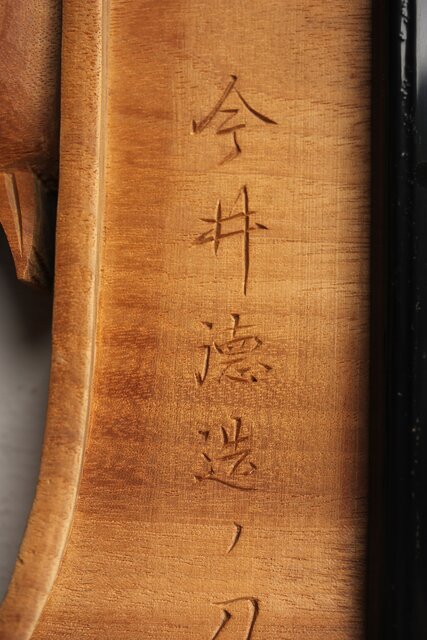 今井德造ノ刀